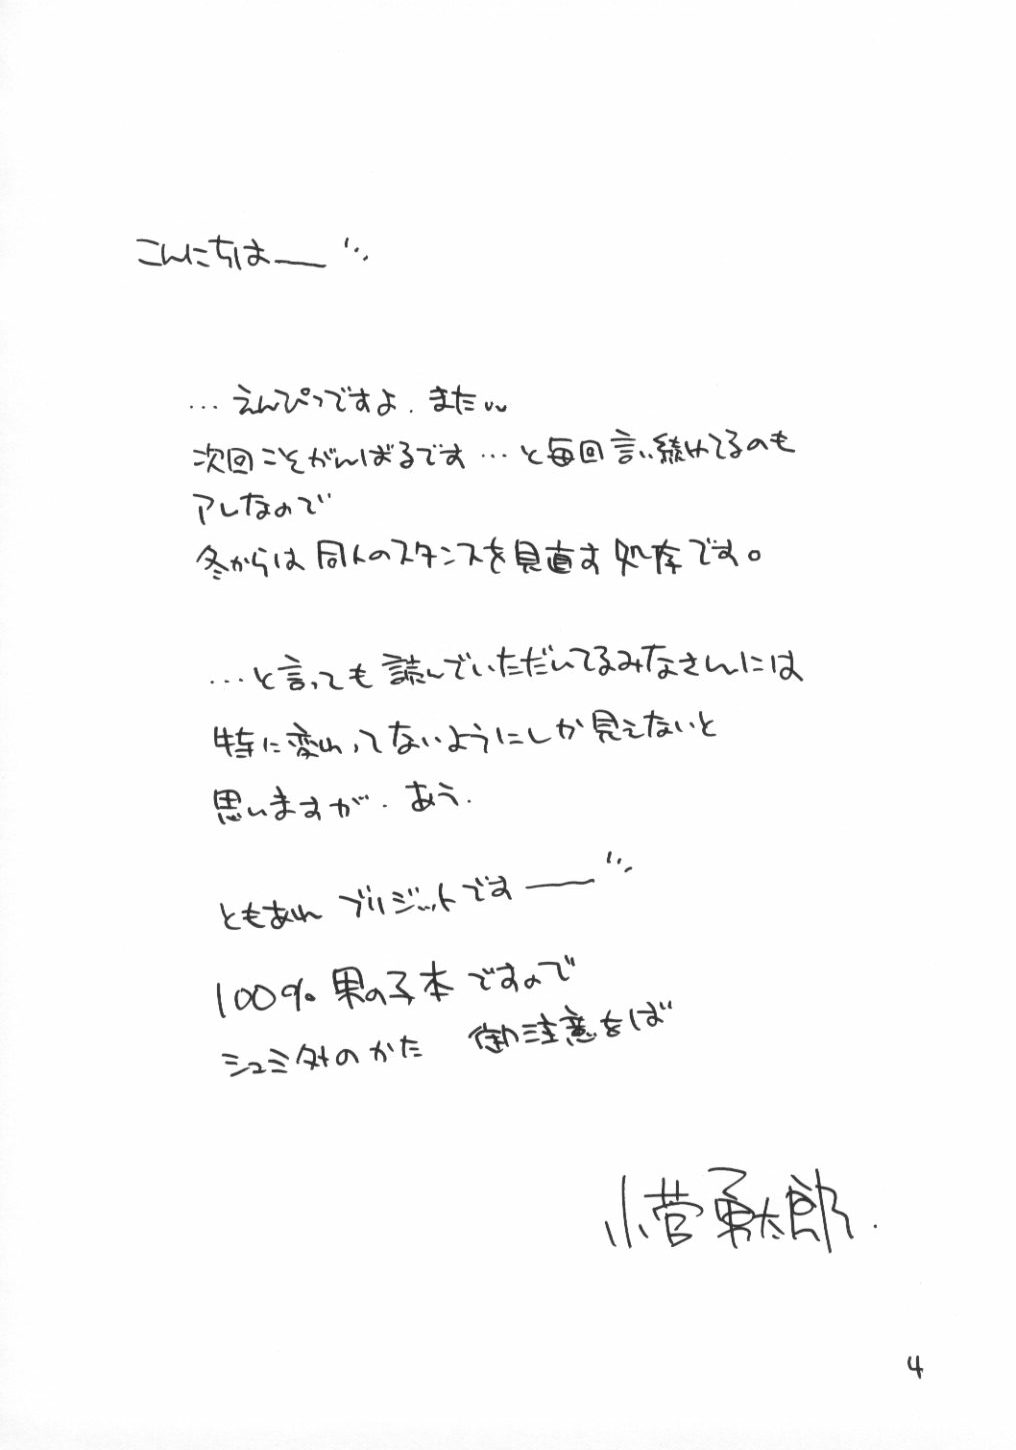 こんにちはー
…えんぴつですよ．また
次回こそがんばるです…と毎回言い続けてるのも
アレなので
冬からは同人のスタンスを見直す処存です。
…と言っても読んでいただいてるみなさんには
特に変わってないようにしか見えないと
思いますが．あう．
ともあれブリジットですー
100%男の子本ですので
シュミ外のかた 御注意をば
小菅勇太郎．
4